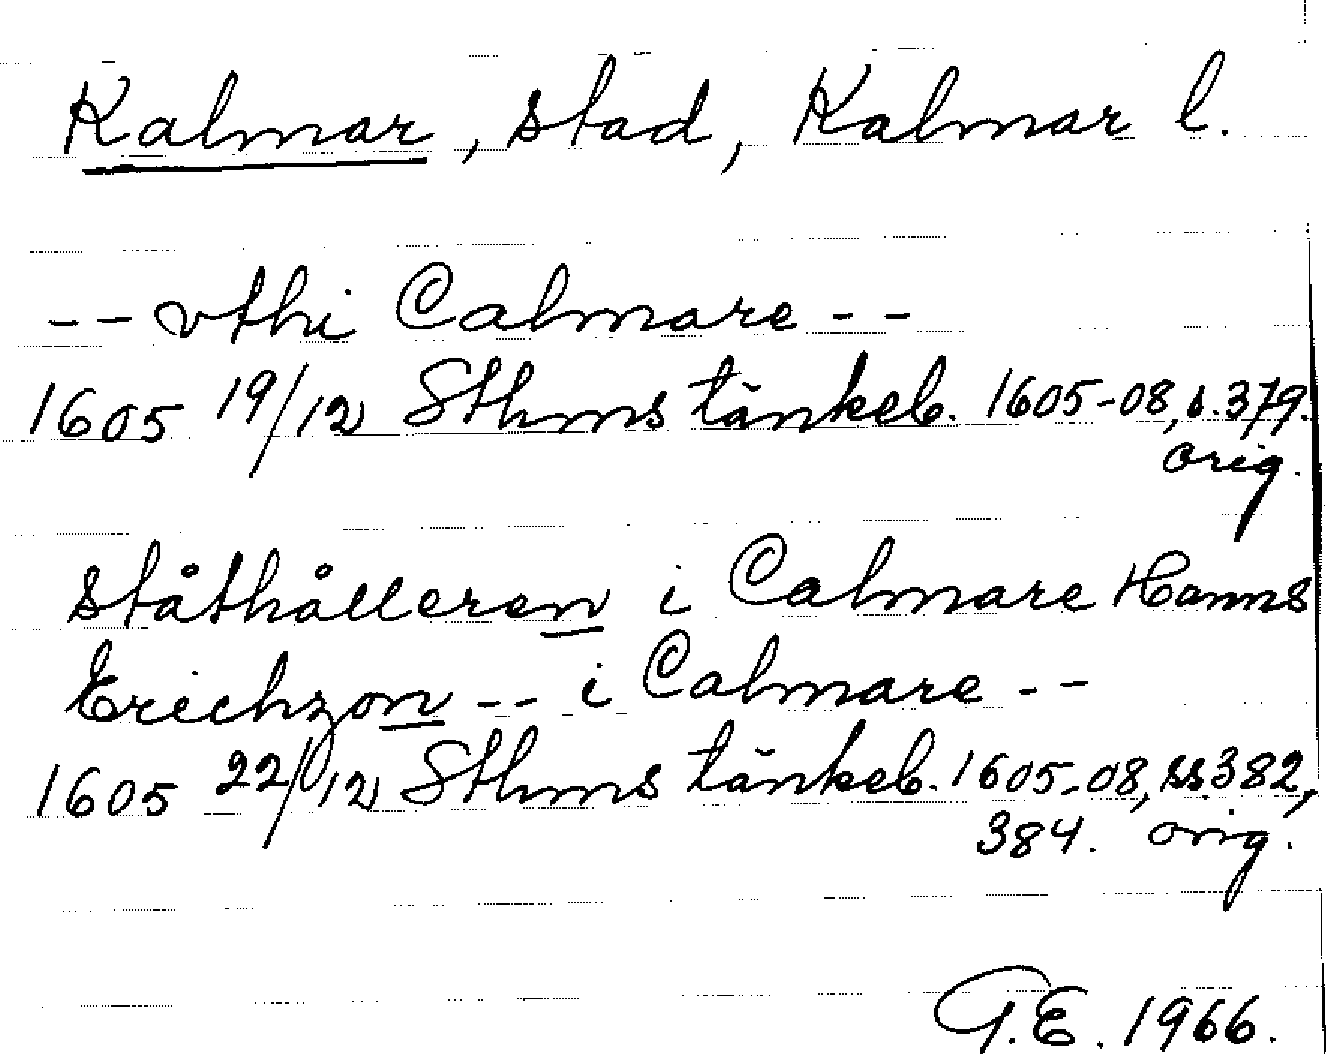 Kalmar, stad, Kalmar l.
-- vthi Calmare --
1605 19/12 Sthms tänkeb. 1605-08, s. 379.
orig.
ståthålleren i Calmare Hanns
Erichzon -- i Calmare --
1605 22/12 Sthms tänkeb. 1605-08, ss. 382,
384. orig.
G.E. 1966.